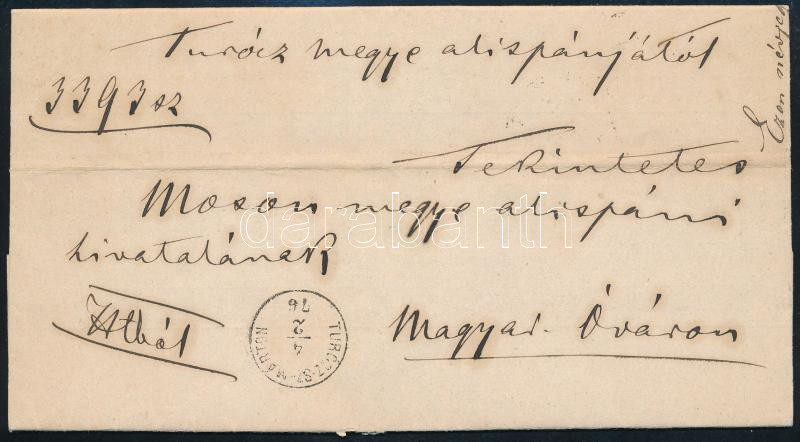 Turócz megye alispánjától
3393 sz
Tekintetes
Moson megye alispáni
hivatalának
Magyar-Óváron
TURÓCZ-SZ-MÁRTON
4
2
76
Ezen névjeg
darabanth